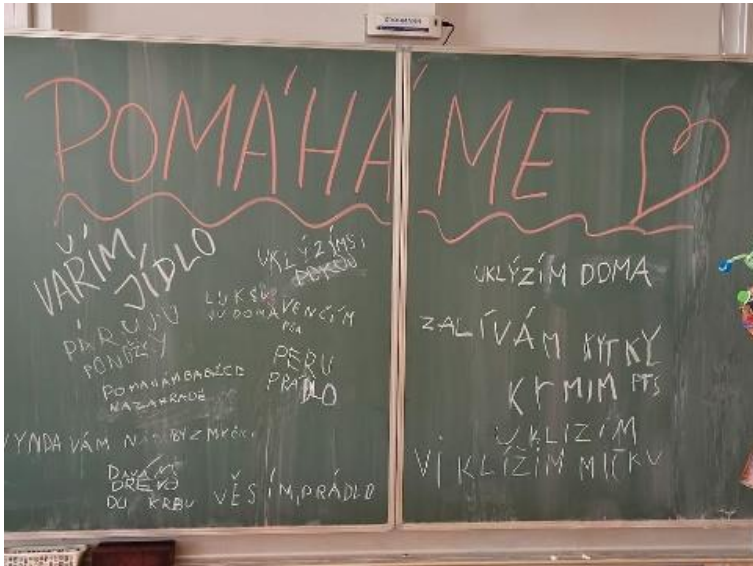 POMÁHÁME
VAŘÍM
JÍDLO
UKLÝZÍM SI
POKOJ
LUKSU
JU DOMA
VENČÍM
PSA
PÁRUJU
PONOŽKY
POMAHÁM BABIČCE
NAZAHRADĚ
PERU
PRÁDLO
VYNDAVÁM
DÁVÁM
DŘEVO
DO KRBU
VĚSÍM PRÁDLO
UKLÝZÍM DOMA
ZALÍVÁM KYTKY
KRMIM
UKLIZÍM
VÍKLÍZÍM MIČKU